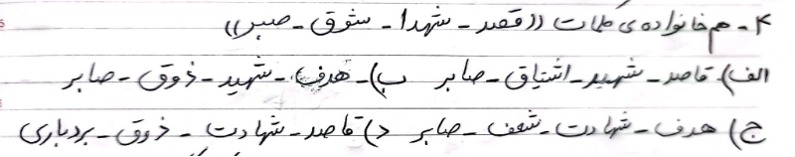 ۴ - هم خانواده ی کلمات ((قصد - شهدا - شوق - صبر))
الف) قاصد - شهید - اشتیاق - صابر ب) - هدف - شهید - ذوق - صابر
ج) هدف - شهادت - شغف - صابر د) قاصد - شهادت - ذوق - بردباری